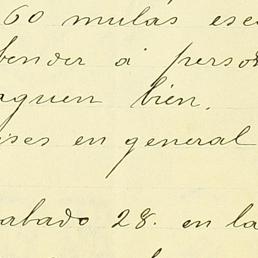 60 mulas esc
bender á person
aguen bien.
ses en general
abado 28. en la